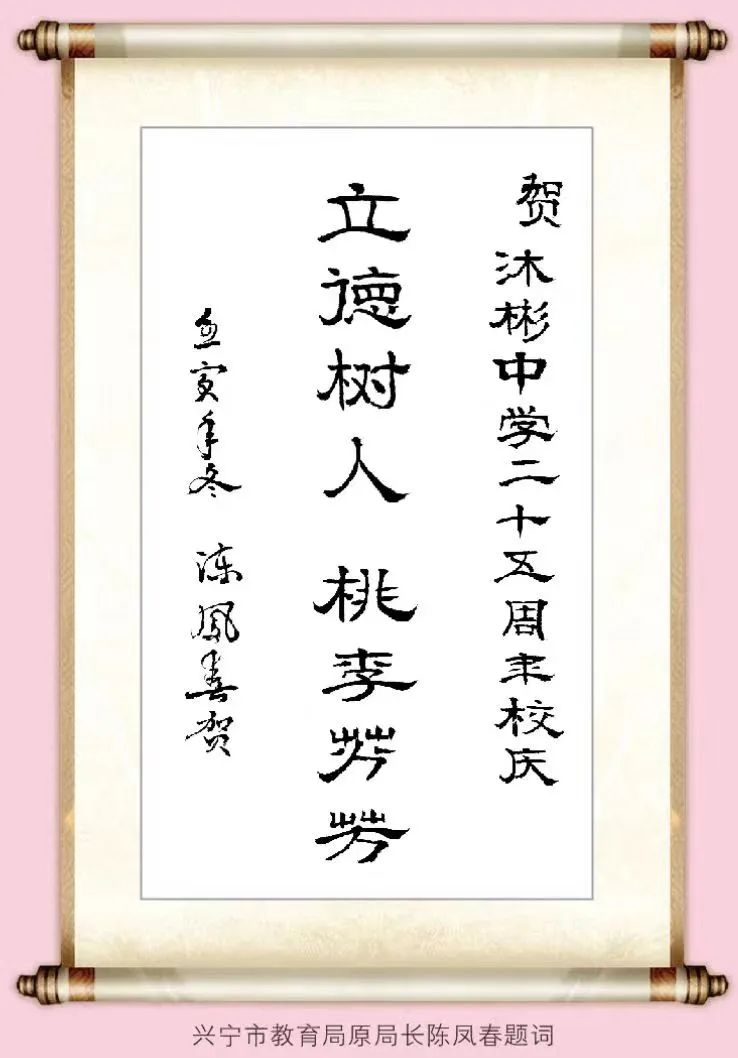 贺沐彬中学二十五周年校庆
立德树人 桃李芬芳
壬寅年冬 陈凤春贺
兴宁市教育局原局长陈凤春题词